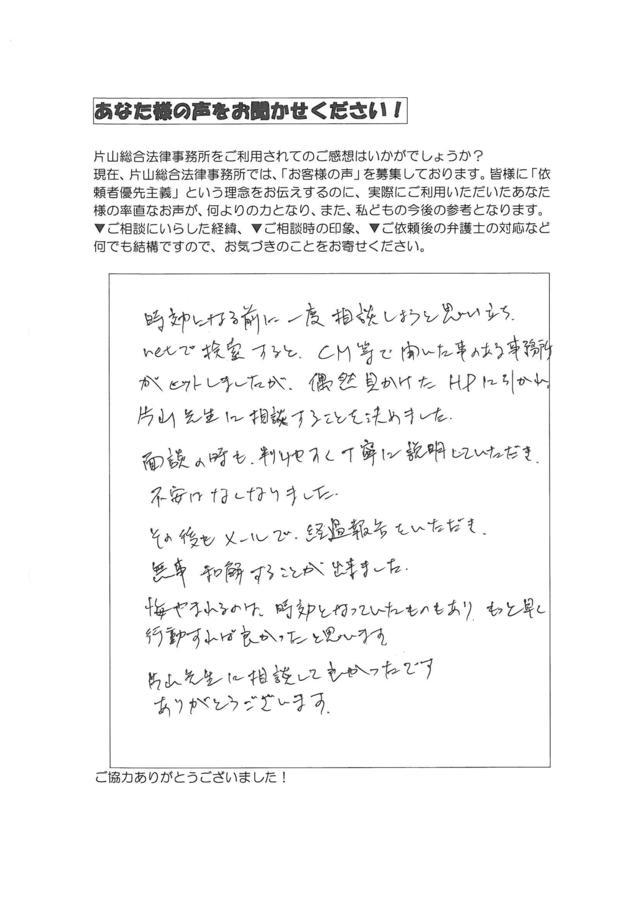 あなた様の声をお聞かせください！
片山総合法律事務所をご利用されてのご感想はいかがでしょうか？
現在、片山総合法律事務所では、「お客様の声」を募集しております。皆様に「依
頼者優先主義」という理念をお伝えするのに、実際にご利用いただいたあなた
様の率直なお声が、何よりの力となり、また、私どもの今後の参考となります。
▼ご相談にいらした経緯、▼ご相談時の印象、▼ご依頼後の弁護士の対応など
何でも結構ですので、お気づきのことをお寄せください。
時効になる前に一度相談しようと思い立ち、
netで検索すると、CM等で聞いた事のある事務所
がヒットしましたが、偶然見かけたHPに引かれ、
片山先生に相談することを決めました。
面談の時も、判りやすく丁寧に説明していただき、
不安はなくなりました。
その後もメールで、経過報告をいただき、
無事和解することが出来ました。
悔やまれるのは、時効となっていたものもあり、もっと早く
行動すれば良かったと思います
片山先生に相談して良かったです
ありがとうございます。
ご協力ありがとうございました！